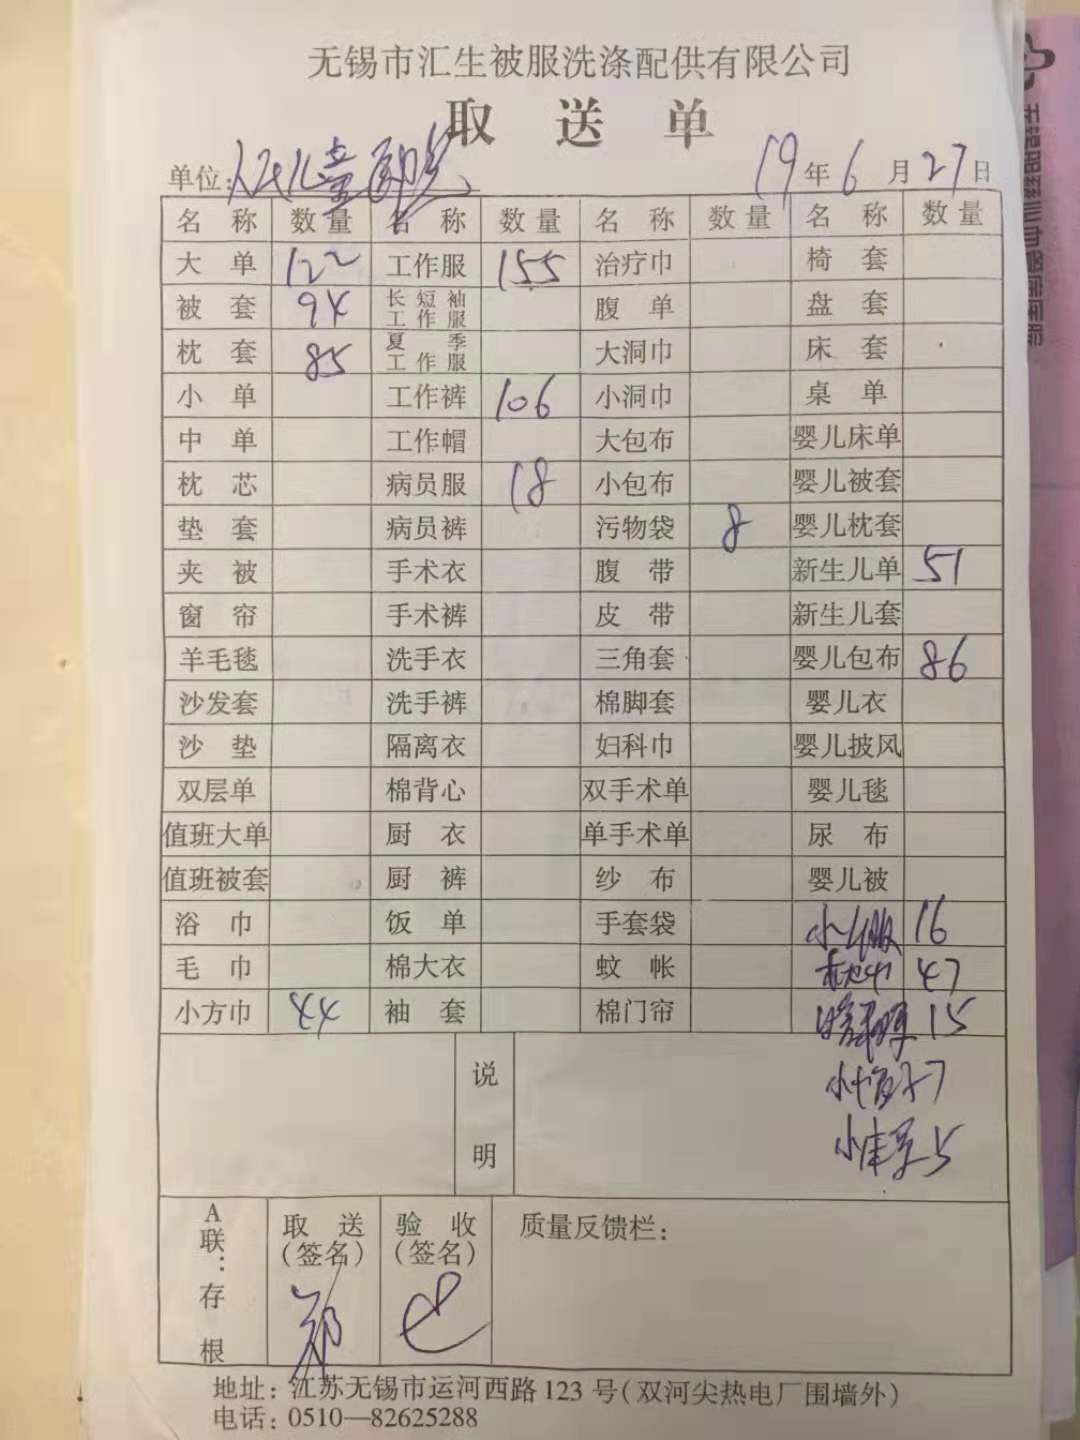 无锡市汇生被服洗涤配供有限公司
取 送 单
单位：人民儿童 19年6月27日
名 称 数量 名 称 数量 名 称 数量 名 称 数量
大 单 122 工作服 155 治疗巾 椅 套
被 套 94 长短袖工作服 腹 单 盘 套
枕 套 85 夏季工作服 大洞巾 床 套
小 单 工作裤 106 小洞巾 桌 单
中 单 工作帽 大包布 婴儿床单
枕 芯 病员服 18 小包布 婴儿被套
垫 套 病员裤 污物袋 8 婴儿枕套
夹 被 手术衣 腹 带 新生儿单 51
窗 帘 手术裤 皮 带 新生儿套
羊毛毯 洗手衣 三角套 婴儿包布 86
沙发套 洗手裤 棉脚套 婴儿衣
沙 垫 隔离衣 妇科巾 婴儿披风
双层单 棉背心 双手术单 婴儿毯
值班大单 厨 衣 单手术单 尿 布
值班被套 厨 裤 纱 布 婴儿被
浴 巾 饭 单 手套袋 小儿服 16
毛 巾 棉大衣 蚊 帐 47
小方巾 44 袖 套 棉门帘 15
说 7
明 5
A联：存根 取 送（签名） 验 收（签名） 质量反馈栏：
郑
地址：江苏无锡市运河西路123号（双河尖热电厂围墙外）
电话：0510—82625288